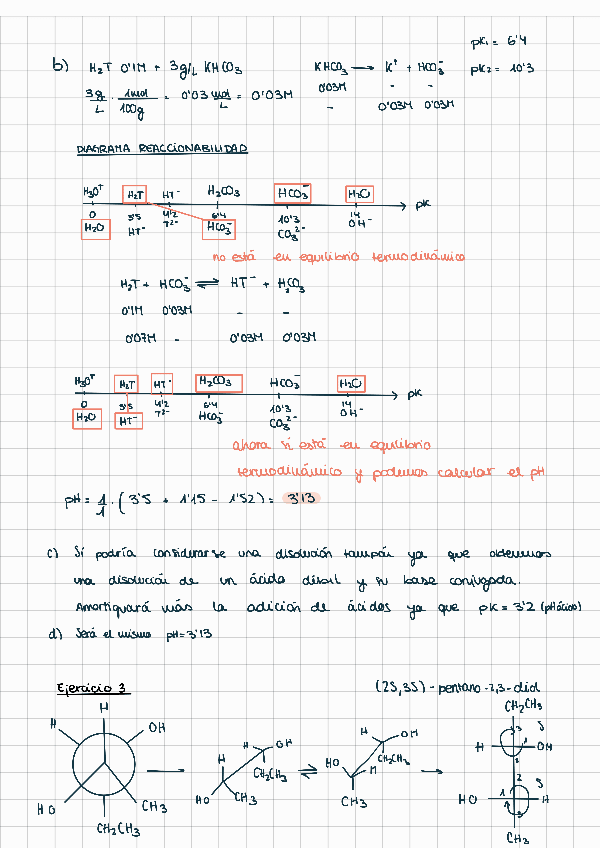 pK₁ = 6'4
b) H₂T 0'1M + 3g/L KHCO₃ KHCO₃ ⟶ K⁺ + HCO₃⁻ pK₂ = 10'3
0'03M - -
3g/L · 1mol/100g = 0'03 mol/L = 0'03M - 0'03M 0'03M
DIAGRAMA REACCIONABILIDAD
H₃O⁺ H₂T HT⁻ H₂CO₃ HCO₃⁻ H₂O
0 3'5 4'2 6'4 10'3 14 pK
H₂O HT⁻ T²⁻ HCO₃⁻ CO₃²⁻ OH⁻
no está en equilibrio termodinámico
H₂T + HCO₃⁻ ⇌ HT⁻ + H₂CO₃
0'1M 0'03M - -
0'07M - 0'03M 0'03M
H₃O⁺ H₂T HT⁻ H₂CO₃ HCO₃⁻ H₂O
0 3'5 4'2 6'4 10'3 14 pK
H₂O HT⁻ T²⁻ HCO₃⁻ CO₃²⁻ OH⁻
ahora si está en equilibrio
termodinámico y podemos calcular el pH
pH = 1/1 · (3'5 + 1'15 - 1'52) = 3'13
c) Sí podría considerarse una disolución tampón ya que obtenemos
una disolución de un ácido débil y su base conjugada.
Amortiguará más la adición de ácidos ya que pK = 3'2 (pH ácido)
d) Será el mismo pH = 3'13
Ejercicio 3 (2S,3S) - pentano-2,3-diol
H CH₂CH₃
H OH H OH H OH 3 S
H CH₂CH₃ HO H CH₂CH₃ H 1 OH
2
2 S
HO CH₃ HO CH₃ CH₃ HO 1 H
CH₂CH₃ 3
CH₃